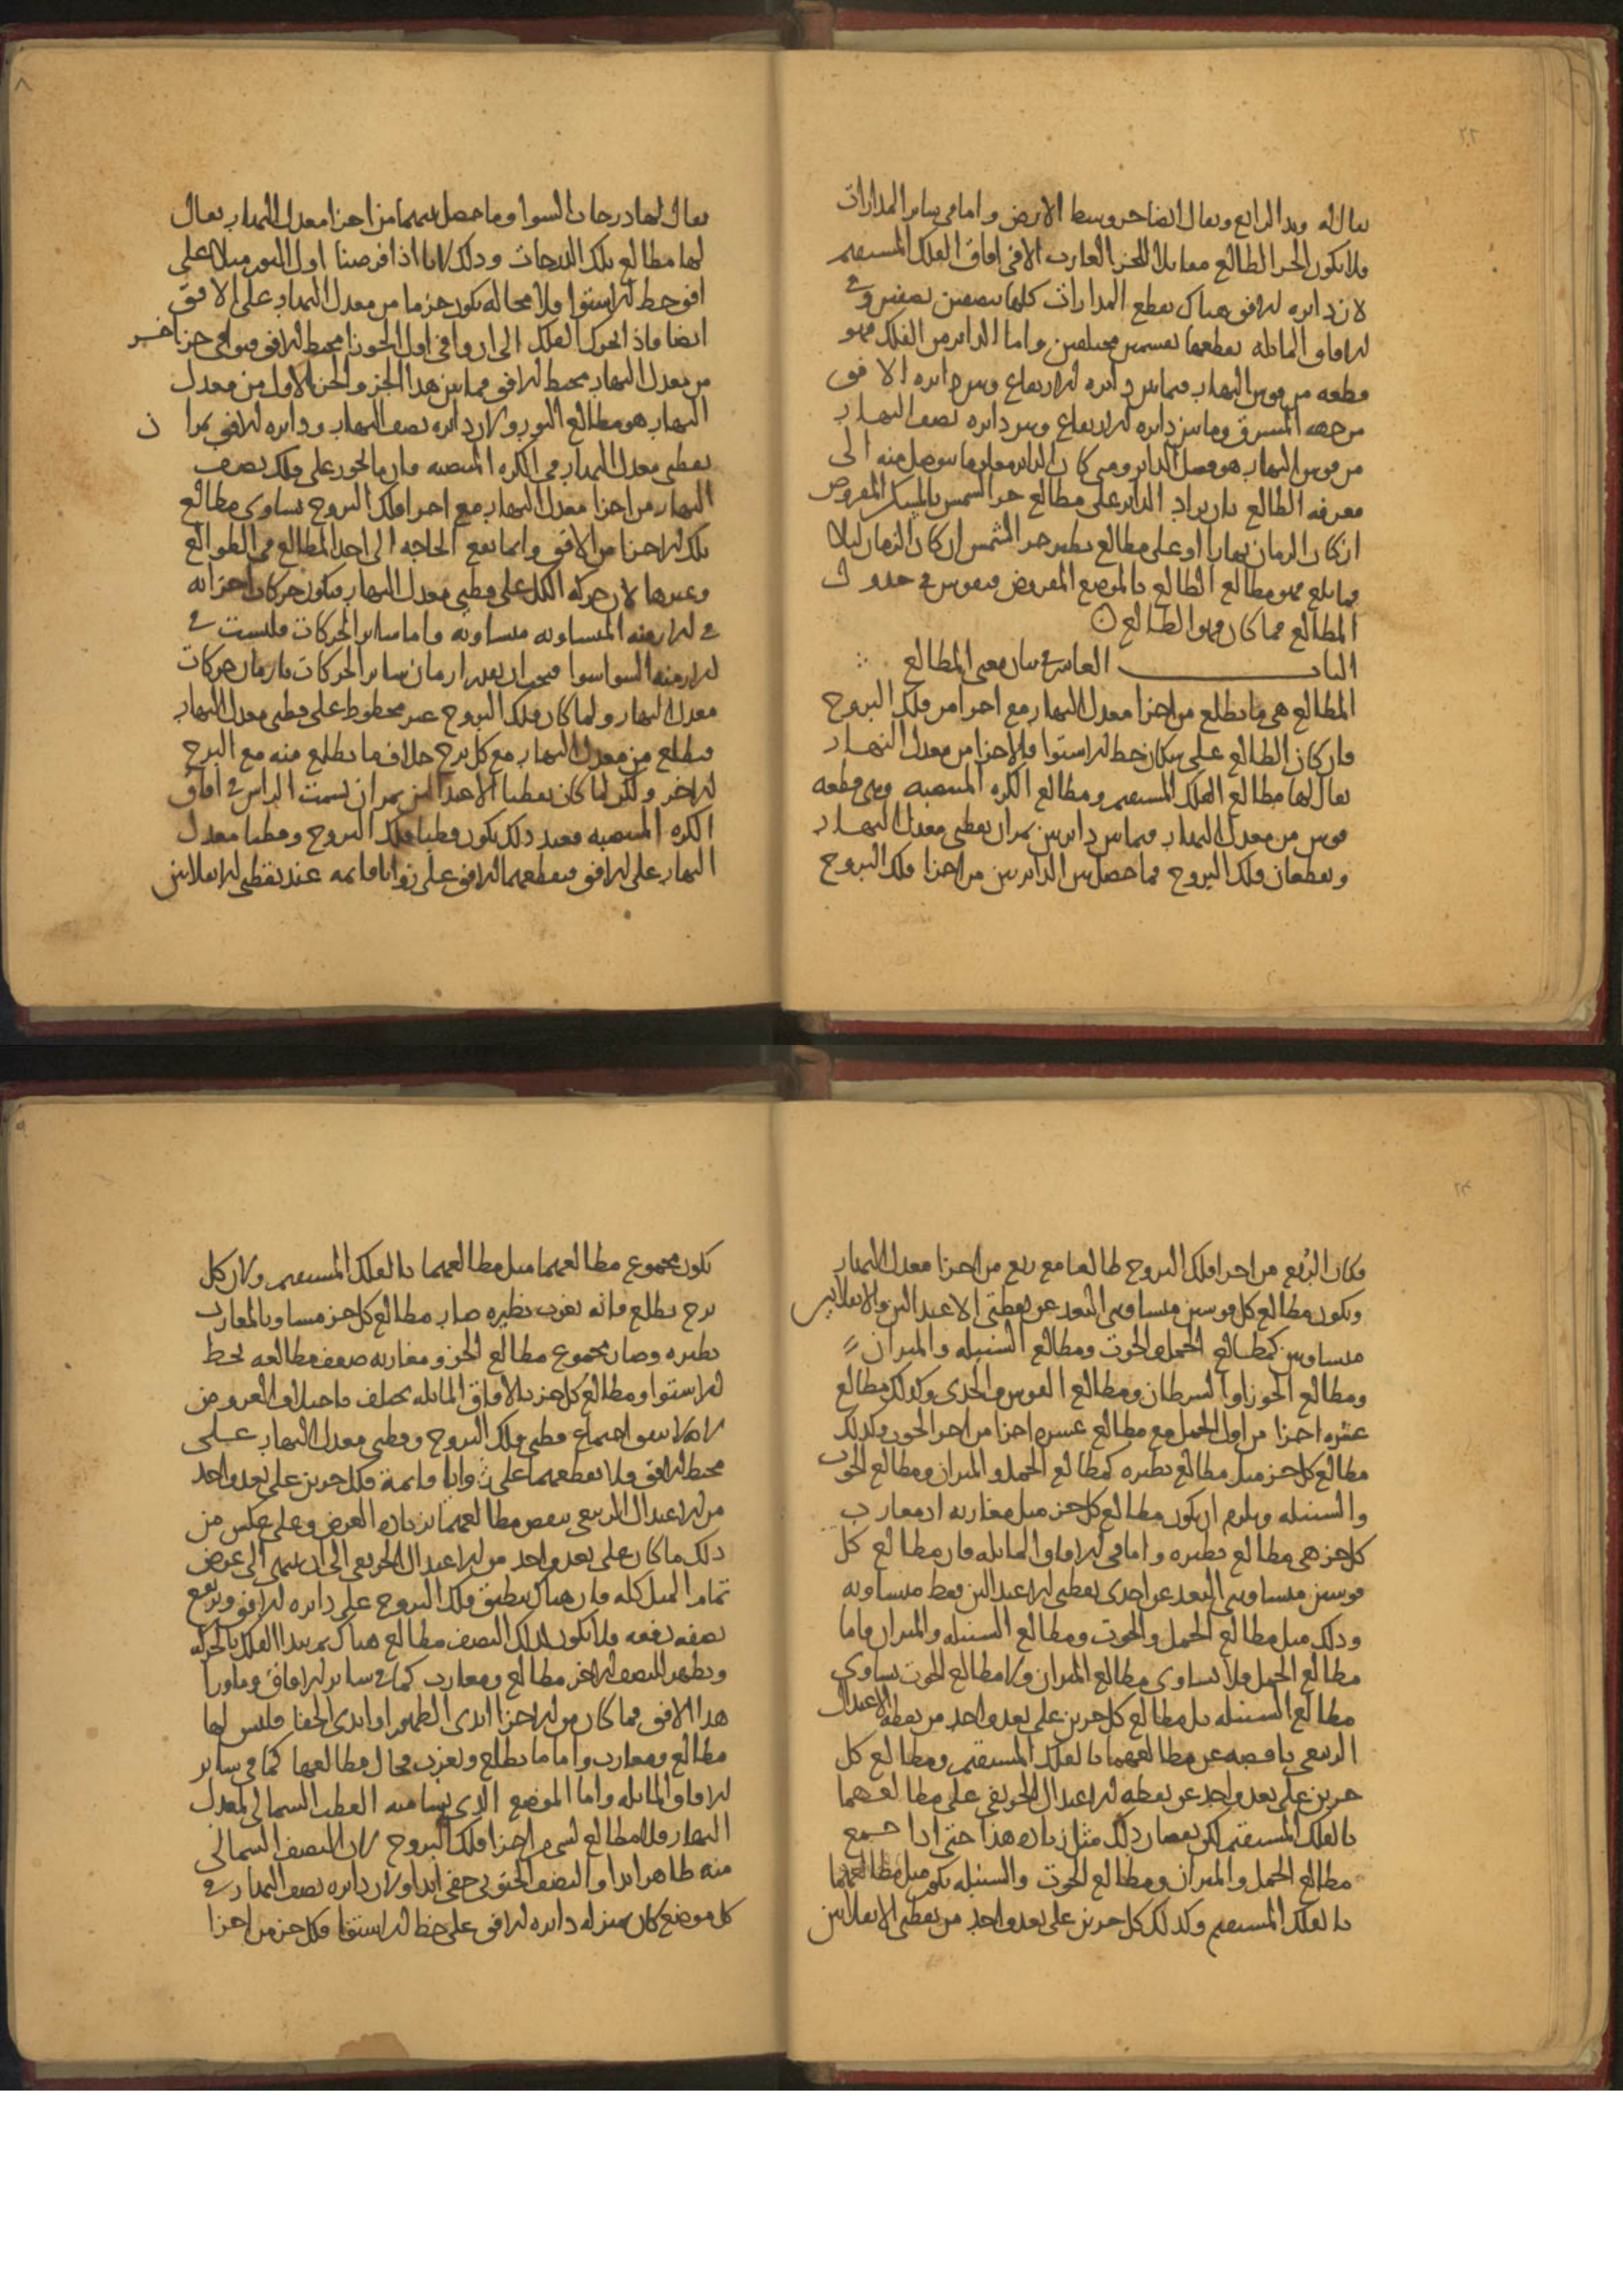 يقال له وتد الرابع ويقال ايضا حر وسط الارض واما في ساير المدارات
فلا يكون الجز الطالع مقابلا للجز الغارب الا في افاق الفلك المستقيم
لان دايره الافق هناك يقطع المدارات كلها بنصفين نصفين وفي
الافاق المايله يقطعها بقسمين مختلفين واما الداير من الفلك فهو
قطعه من قوس النهار فيما بين دايره الارتفاع وبين دايره الافق
من جهه المشرق وما بين دايره الارتفاع وبين دايره نصف النهار
من قوس النهار هو فضل الداير ومتى كان الداير معلوما يتوصل منه الى
معرفه الطالع بان يزاد الداير على مطالع جز الشمس بالمسكن المفروض
ان كان الزمان نهارا او على مطالع نظير جز الشمس ان كان الزمان ليلا
فما بلغ فهو مطالع الطالع بالموضع المفروض فيقوس في جدول
المطالع فما كان فهو الطالع
الباب العاشر في بيان معنى المطالع
المطالع هي ما يطلع من اجزا معدل النهار مع اجزا من فلك البروج
فان كان الطالع على سكان خط الاستوا فالاجزا من معدل النهار
يقال لها مطالع الفلك المستقيم ومطالع الكره المنتصبه وهي قطعه
قوس من معدل النهار فيما بين دايرتين يمران بقطبي معدل النهار
ويقطعان فلك البروج فما حصل بين الدايرتين من اجزا فلك البروج
٨
يقال لها درجات السوا وما حصل بينهما من اجزا معدل النهار يقال
لها مطالع تلك الدرجات وذلك لانا اذا فرضنا اول الثور مثلا على
افق خط الاستوا فلا محاله يكون جز ما من معدل النهار على الافق
ايضا فاذا تحرك الفلك الى ان وافى اول الجوزا محيط الافق فيوافي جز اخر
من معدل النهار محيط الافق فما بين هذا الجز والجز الاول من معدل
النهار هو مطالع الثور ولان دايره نصف النهار ودايره الافق يمرا ن
بقطبي معدل النهار في الكره المنتصبه فان ما يجوز على فلك نصف
النهار من اجزا معدل النهار مع اجزا فلك البروج يساوى مطالع
تلك الاجزا من الافق وانما يقع الحاجه الى اخذ المطالع في الطوالع
وغيرها لان حركه الكل على قطبي معدل النهار فيكون حركات اجزايه
في الازمنه المتساويه متساويه واما ساير الحركات فليست في
الازمنه السوا سوا فيجب ان يقدر ازمان ساير الحركات بازمان حركات
معدل النهار ولما كان فلك البروج غير مخطوط على قطبي معدل النهار
فيطلع من معدل النهار مع كل برج خلاف ما يطلع منه مع البرج
الاخر ولكن لما كان نقطتا الاعتدالين يمران بسمت الراس في افاق
الكره المنتصبه فعند ذلك يكون قطبا فلك البروج وقطبا معدل
النهار على الافق فيقطعهما الافق على زوايا قايمه عند نقطتي الانقلابين
فكان الربع من اجزا فلك البروج طالعا مع ربع من اجزا معدل النهار
ويكون مطالع كل قوسين متساويي البعد عن نقطتي الاعتدالين والانقلابين
متساويين كمطالع الحمل والحوت ومطالع السنبله والميزان
ومطالع الجوزا والسرطان ومطالع القوس والجدى وكذلك مطالع
عشره اجزا من اول الحمل مع مطالع عشره اجزا من اخر الحوت وكذلك
مطالع كل جز مثل مطالع نظيره كمطالع الحمل والميزان ومطالع الحوت
والسنبله ويلزم ان يكون مطالع كل جز مثل مغاربه اذ مغارب
كل جز هي مطالع نظيره واما في الافاق المايله فان مطالع كل
قوسين متساويي البعد عن احدى نقطتي الاعتدالين فقط متساويه
وذلك مثل مطالع الحمل والحوت ومطالع السنبله والميزان فاما
مطالع الحمل فلا تساوى مطالع الميزان ولا مطالع الحوت تساوي
مطالع السنبله بل مطالع كل جزين على بعد واحد من نقطه الاعتدال
الربيعي ناقصه عن مطالعهما بالفلك المستقيم ومطالع كل
جزين على بعد واحد عن نقطه الاعتدال الخريفي على مطالعهما
بالفلك المستقيم لكن نقصان ذلك مثل زياده هذا حتى اذا جمع
مطالع الحمل والميزان ومطالع الحوت والسنبله يكون مثل مطالعهما
بالفلك المستقيم وكذلك كل جزين على بعد واحد من نقطتي الانقلابين
٩
يكون مجموع مطالعهما مثل مطالعهما بالفلك المستقيم ولان كل
برج يطلع فانه يغرب نظيره صار مطالع كل جز مساويا لمغارب
نظيره وصار مجموع مطالع الجز ومغاربه ضعف مطالعه بخط
الاستوا ومطالع كل جز بالافاق المايله يختلف باختلاف العروض
لانه لا يتفق اجتماع قطبي فلك البروج وقطبي معدل النهار على
محيط الافق ولا يقطعهما على زوايا قايمة فكل جزين على بعد واحد
من الاعتدال الربيعي ينقص مطالعهما بزياده العرض وعلى عكس من
ذلك ما كان على بعد واحد من الاعتدال الخريفي الى ان ينتهي الى عرض
تمام الميل كله فان هناك ينطبق فلك البروج على دايره الافق ويرتفع
نصفه دفعه فلا يكون لذلك النصف مطالع هناك ثم يبدا الفلك بالحركه
ويظهر للنصف الاخر مطالع ومغارب كما في ساير الافاق وما ورا
هذا الافق فما كان من الاجزا ابدى الظهور او ابدى الخفا فليس لها
مطالع ومغارب واما ما يطلع ويغرب فحال مطالعها كما في ساير
الافاق المايله واما الموضع الذى يسامته القطب الشمالي لمعدل
النهار فلا مطالع لشي من اجزا فلك البروج لان النصف الشمالي
منه ظاهر ابدا والنصف الجنوبي خفي ابدا ولان دايره نصف النهار في
كل موضع كان بمنزله دايره الافق على خط الاستوا فكل جز من اجزا